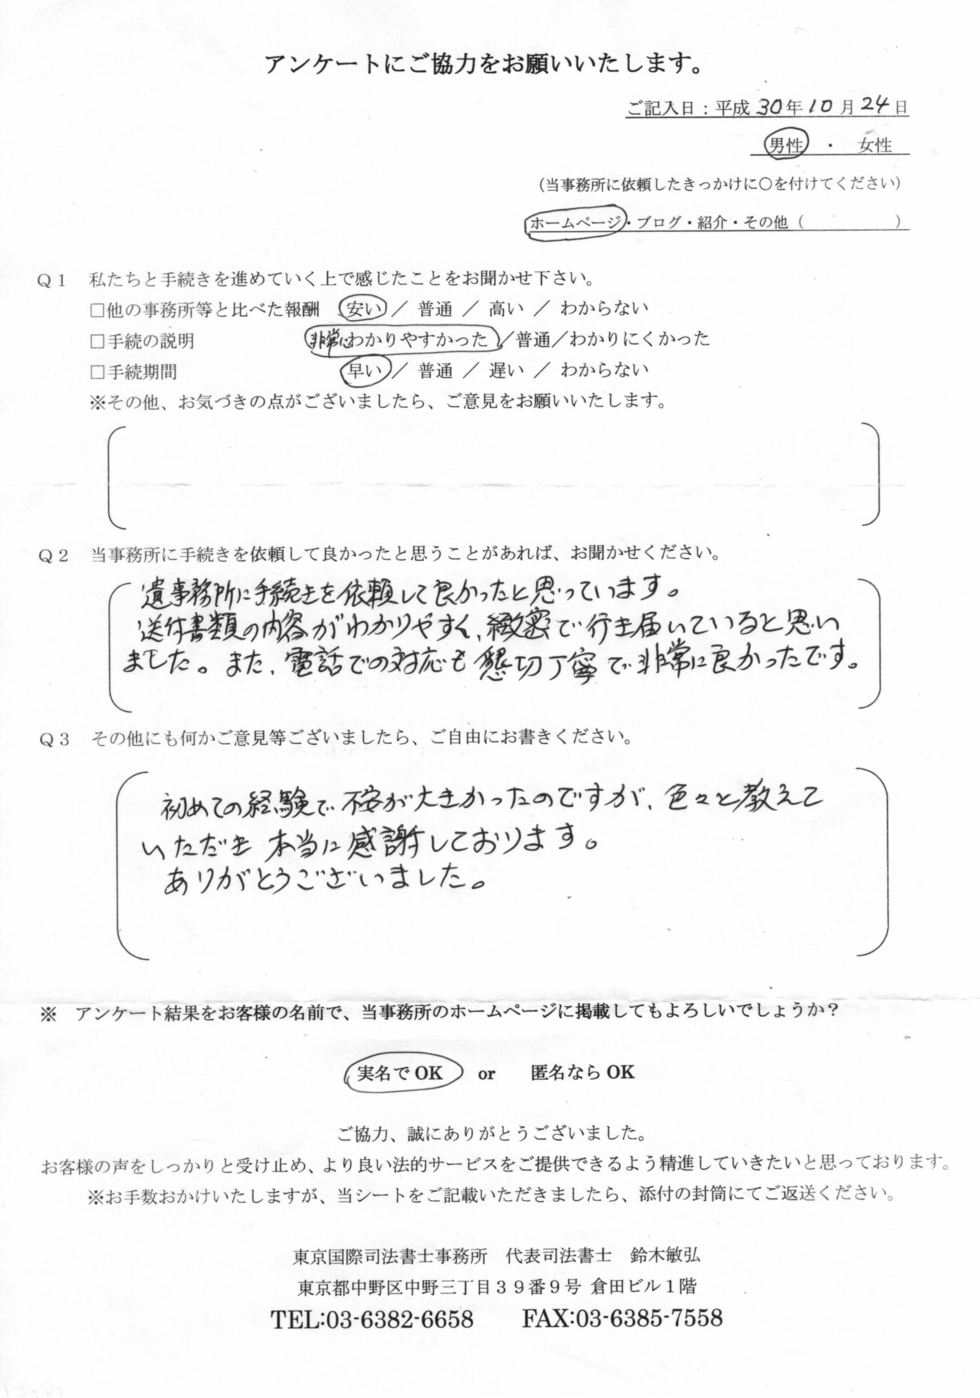 アンケートにご協力をお願いいたします。
ご記入日：平成 30年 10月 24日
男性 ・ 女性
（当事務所に依頼したきっかけに○を付けてください）
ホームページ・ブログ・紹介・その他（　　　　　）
Ｑ１　私たちと手続きを進めていく上で感じたことをお聞かせ下さい。
□他の事務所等と比べた報酬　安い ／ 普通 ／ 高い ／ わからない
□手続の説明　非常にわかりやすかった ／普通／わかりにくかった
□手続期間　早い ／ 普通 ／ 遅い ／ わからない
※その他、お気づきの点がございましたら、ご意見をお願いいたします。
Ｑ２　当事務所に手続きを依頼して良かったと思うことがあれば、お聞かせください。
事務所に手続きを依頼して良かったと思っています。
送付書類の内容がわかりやすく、緻密で行き届いていると思い
ました。また、電話での対応も懇切丁寧で非常に良かったです。
Ｑ３　その他にも何かご意見等ございましたら、ご自由にお書きください。
初めての経験で不安が大きかったのですが、色々と教えて
いただき本当に感謝しております。
ありがとうございました。
※　アンケート結果をお客様の名前で、当事務所のホームページに掲載してもよろしいでしょうか？
実名でOK　or　匿名ならOK
ご協力、誠にありがとうございました。
お客様の声をしっかりと受け止め、より良い法的サービスをご提供できるよう精進していきたいと思っております。
※お手数おかけいたしますが、当シートをご記載いただきましたら、添付の封筒にてご返送ください。
東京国際司法書士事務所　代表司法書士　鈴木敏弘
東京都中野区中野三丁目３９番９号 倉田ビル１階
TEL:03-6382-6658　FAX:03-6385-7558